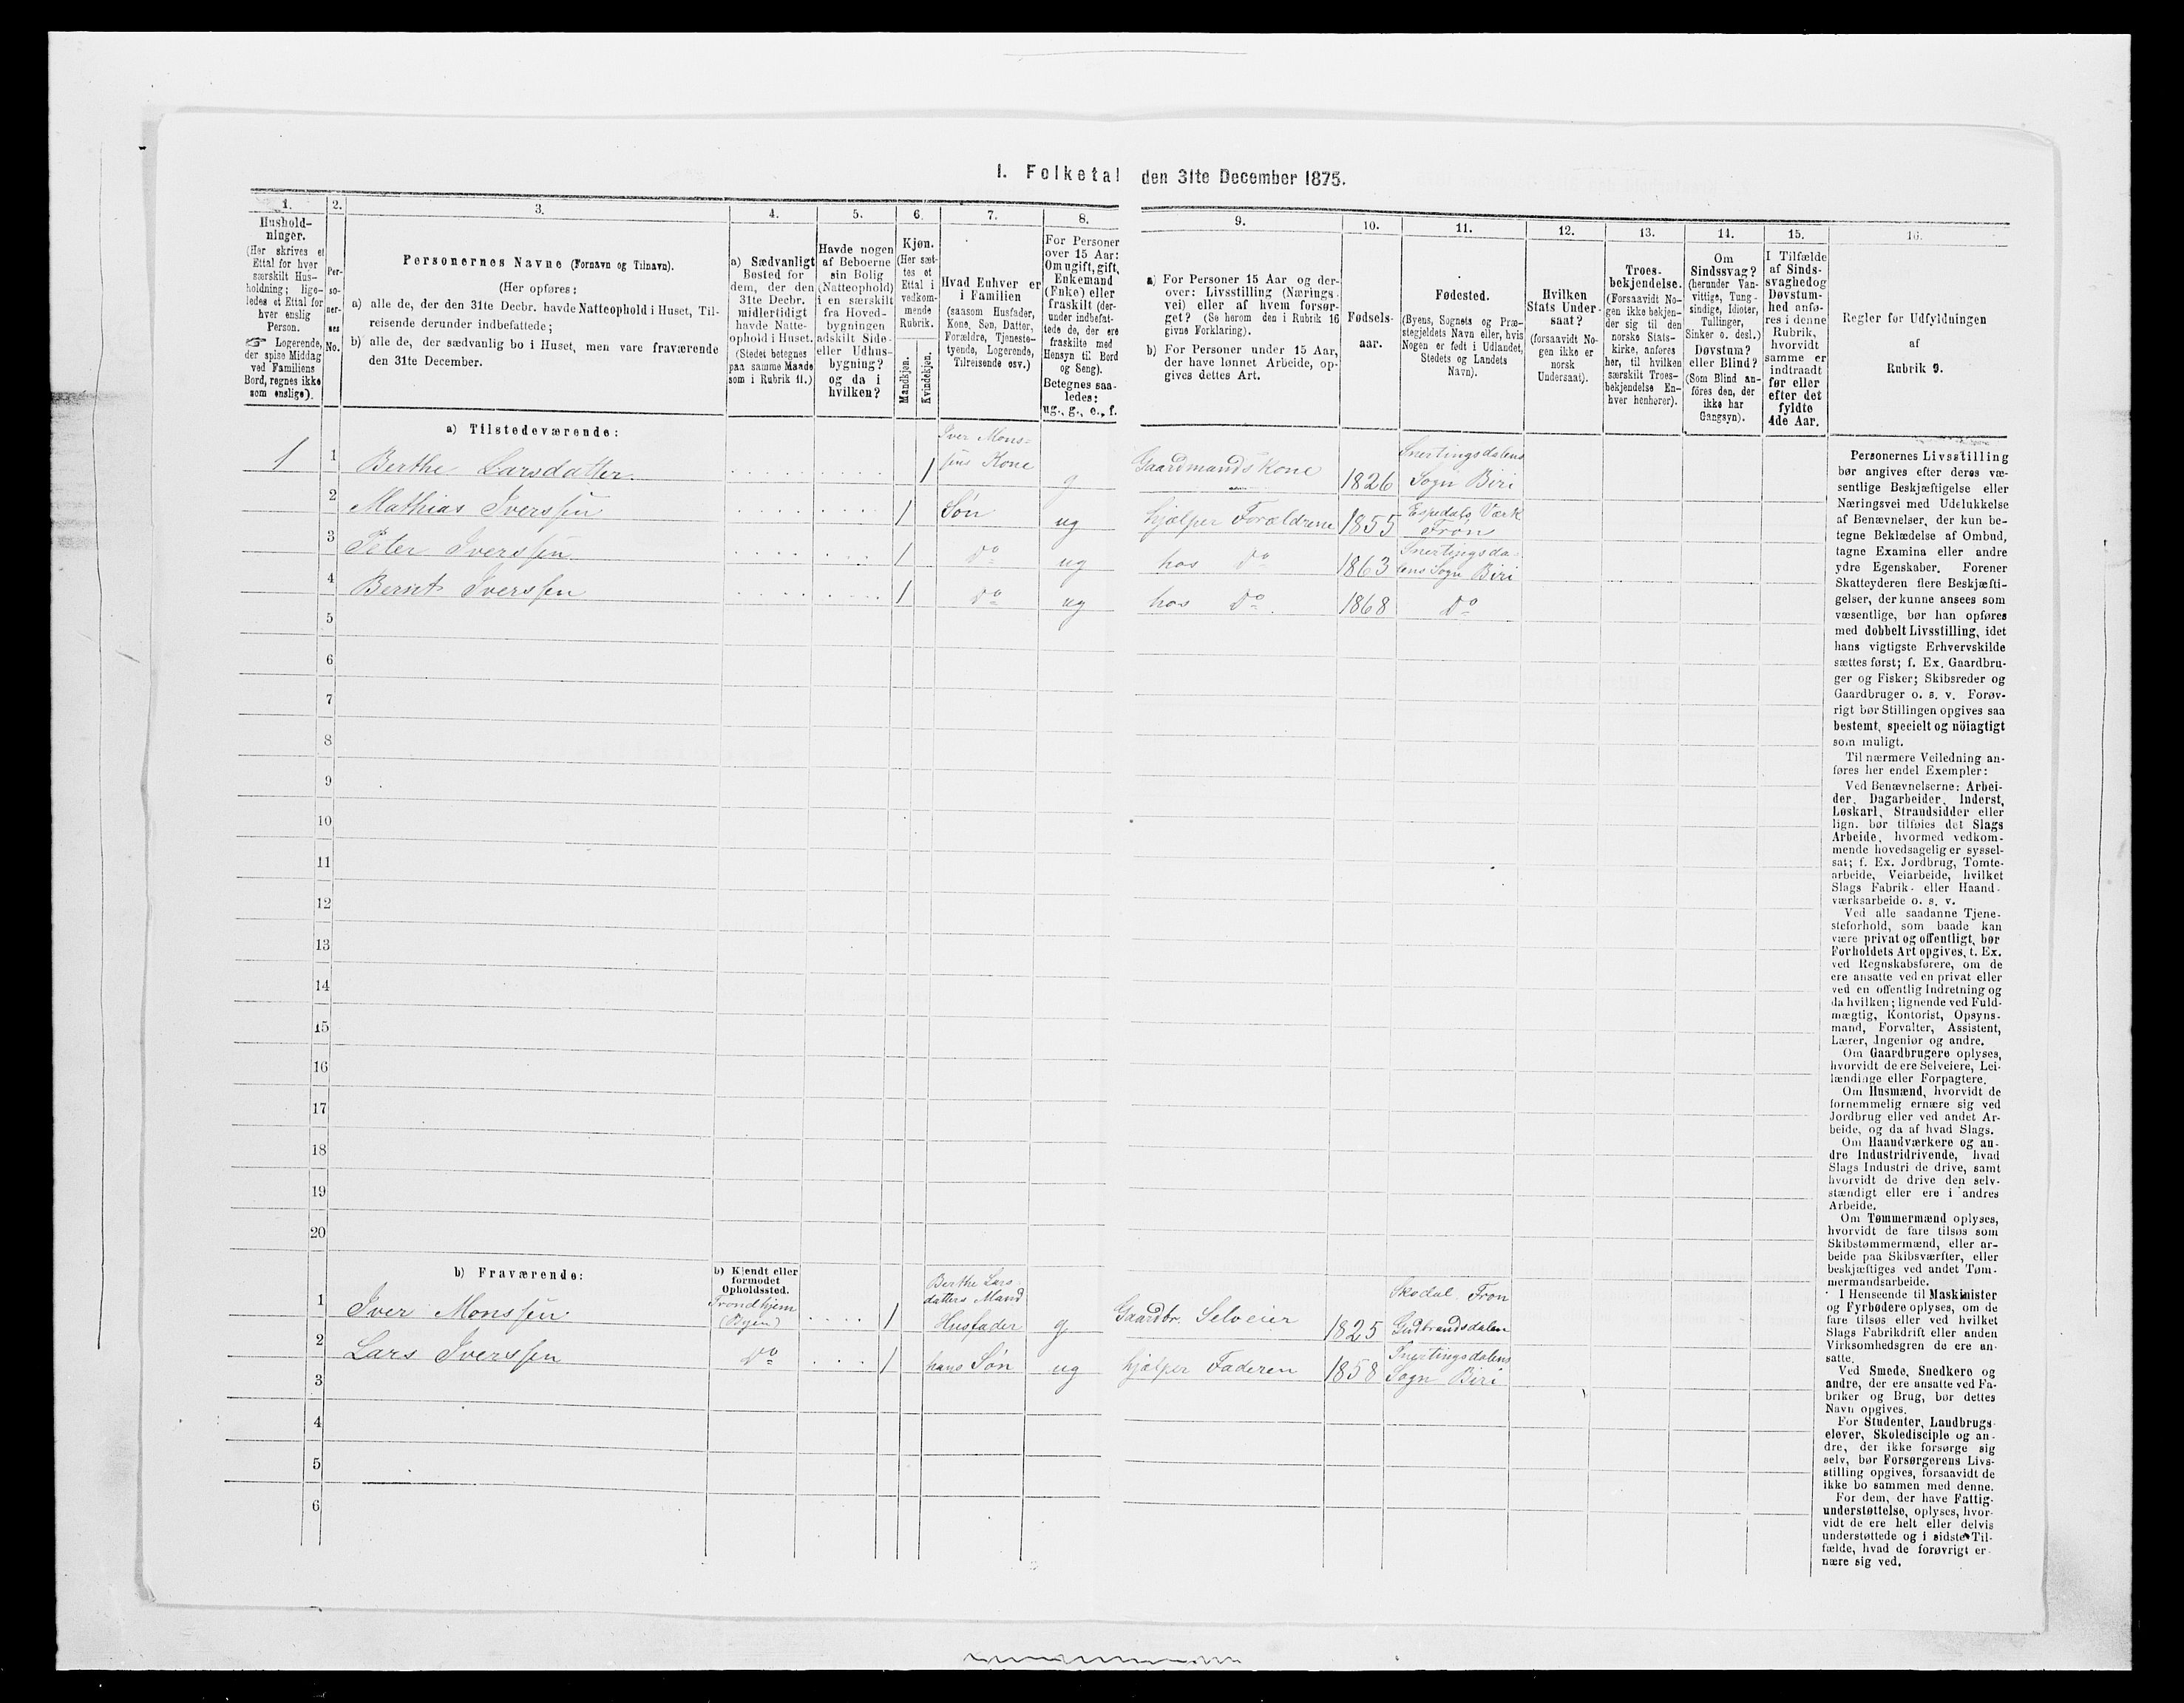 I. Folketal den 31te December 1875.
1.
Hushold-
ninger.
(Her skrives et
Ettal for hver
særskilt Hus-
holdning; lige-
ledes et Ettal for
hver enslig
Person.
☞ Logerende,
der spise Middag
ved Familiens
Bord, regnes ikke
som enslige).
2.
Per-
so-
ner-
nes
No.
3.
Personernes Navne (Fornavn og Tilnavn).
(Her opføres:
a) alle de, der den 31te Decbr. havde Natteophold i Huset, Til-
reisende derunder indbefattede;
b) alle de, der sædvanlig bo i Huset, men vare fraværende
den 31te December.
4.
a) Sædvanligt
Bosted for
dem, der den
31te Decbr.
midlertidigt
havde Natte-
ophold i Huset.
(Stedet betegnes
paa samme Maade
som i Rubrik 11.)
5.
Havde nogen
af Beboerne
sin Bolig
(Natteophold)
i en særskilt
fra Hoved-
bygningen
adskilt Side-
eller Udhus-
bygning?
og da i
hvilken?
6.
Kjøn.
(Her sæt-
tes et
Ettal i
vedkom-
mende
Rubrik.
Mandkjøn.
Kvindekjøn.
7.
Hvad Enhver er
i Familien
(saasom Husfader,
Kone, Søn, Datter,
Forældre, Tjeneste-
tyende, Logerende,
Tilreisende osv.)
8.
For Personer
over 15 Aar:
Om ugift, gift,
Enkemand
(Enke) eller
fraskilt (der-
under indbefat-
tede de, der ere
fraskilte med
Hensyn til Bord
og Seng).
Betegnes saa-
ledes:
ug., g., e., f.
9.
a) For Personer 15 Aar og der-
over: Livsstilling (Nærings-
vei) eller af hvem forsør-
get? (Se herom den i Rubrik 16
givne Forklaring).
b) For Personer under 15 Aar,
der have lønnet Arbeide, op-
gives dettes Art.
10.
Fødsels-
aar.
11.
Fødested.
(Byens, Sognets og Præ-
stegjeldets Navn eller, hvis
Nogen er født i Udlandet,
Stedets og Landets
Navn).
12.
Hvilken
Stats Under-
saat?
(forsaavidt No-
gen ikke er
norsk
Undersaat).
13.
Troes-
bekjendelse.
(Forsaavidt No-
gen ikke bekjen-
der sig til den
norske Stats-
kirke, anføres
her, til hvilken
særskilt Troes-
bekjendelse En-
hver henhører).
14.
Om
Sindssvag?
(herunder Van-
vittige, Tung-
sindige, Idioter,
Tullinger,
Sinker o. desl.)
Døvstum?
eller Blind?
(Som Blind an-
føres den, der
ikke har
Gangsyn).
15.
I Tilfælde
af Sinds-
svaghed og
Døvstum-
hed anfø-
res i denne
Rubrik,
hvorvidt
samme er
indtraadt
før eller
efter det
fyldte
4de Aar.
16.
Regler for Udfyldningen
af
Rubrik 9.
a) Tilstedeværende:
1 1 Berthe Larsdatter 1 Iver Mons=
sens Kone g Gaardmands Kone 1826 Snertingsdalens
Sogn Biri
2 Mathias Iverssen 1 Søn ug hjælper Forældrene 1855 Espedals Værk
Fron
3 Peter Iverssen 1 do ug hos do 1863 Snertingsda-
lens Sogn Biri
4 Bernt Iverssen 1 do ug hos do 1868 do
5
6
7
8
9
10
11
12
13
14
15
16
17
18
19
20
b) Fraværende:
b) Kjendt eller
formodet
Opholdssted.
1 Iver Monssen Trondhjem
(Byen) 1 Berthe Lars-
datters Mand
Husfader g Gaardbr. Selveier 1825 Skodal Fron
Gudbrandsdalen
2 Lars Iverssen do 1 hans Søn ug hjælper Faderen 1858 Snertingsdalens
Sogn Biri
3
4
5
6
Personernes Livsstilling
bør angives efter deres væ-
sentlige Beskjæftigelse eller
Næringsvei med Udelukkelse
af Benævnelser, der kun be-
tegne Beklædelse af Ombud,
tagne Examina eller andre
ydre Egenskaber. Forener
Skatteyderen flere Beskjæfti-
gelser, der kunne ansees som
væsentlige, bør han opføres
med dobbelt Livsstilling, idet
hans vigtigste Erhvervskilde
sættes først; f. Ex. Gaardbru-
ger og Fisker; Skibsreder og
Gaardbruger o. s. v. Forøv-
rigt bør Stillingen opgives saa
bestemt, specielt og nöiagtigt
som muligt.
Til nærmere Veiledning an-
føres her endel Exempler:
Ved Benævnelserne: Arbei-
der, Dagarbeider, Inderst,
Løskarl, Strandsidder eller
lign. bør tilføies det Slags
Arbeide, hvormed vedkom-
mende hovedsagelig er syssel-
sat; f. Ex. Jordbrug, Tomte-
arbeide, Veiarbeide, hvilket
Slags Fabrik- eller Haand-
værksarbeide o. s. v.
Ved alle saadanne Tjene-
steforhold, som baade kan
være privat og offentligt, bør
Forholdets Art opgives, t. Ex.
ved Regnskabsførere, om de
ere ansatte ved en privat eller
ved en offentlig Indretning og
da hvilken; lignende ved Fuld-
mægtig, Kontorist, Opsyns-
mand, Forvalter, Assistent,
Lærer, Ingeniør og andre.
Om Gaardbrugere oplyses,
hvorvidt de ere Selveiere, Lei-
lændinge eller Forpagtere.
Om Husmænd, hvorvidt de
fornemmelig ernære sig ved
Jordbrug eller ved andet Ar-
beide, og da af hvad Slags.
Om Haandværkere og an-
dre Industridrivende, hvad
Slags Industri de drive, samt
hvorvidt de drive den selv-
stændigt eller ere i andres
Arbeide.
Om Tømmermænd oplyses,
hvorvidt de fare tilsøs som
Skibstømmermænd, eller ar-
beide paa Skibsværfter, eller
beskjæftiges ved andet Tøm-
mermandsarbeide.
I Henseende til Maskinister
og Fyrbødere oplyses, om de
fare tilsøs eller ved hvilket
Slags Fabrikdrift eller anden
Virksomhedsgren de ere an-
satte.
Ved Smede, Snedkere og
andre, der ere ansatte ved Fa-
briker og Brug, bør dettes
Navn opgives.
For Studenter, Landbrugs-
elever, Skoledisciple og an-
dre, der ikke forsørge sig
selv, bør Forsørgerens Livs-
stilling opgives, forsaavidt de
ikke bo sammen med denne.
For dem, der have Fattig-
understøttelse, oplyses, hvor-
vidt de ere helt eller delvis
understøttede og i sidste Til-
fælde, hvad de forøvrigt er-
nære sig ved.